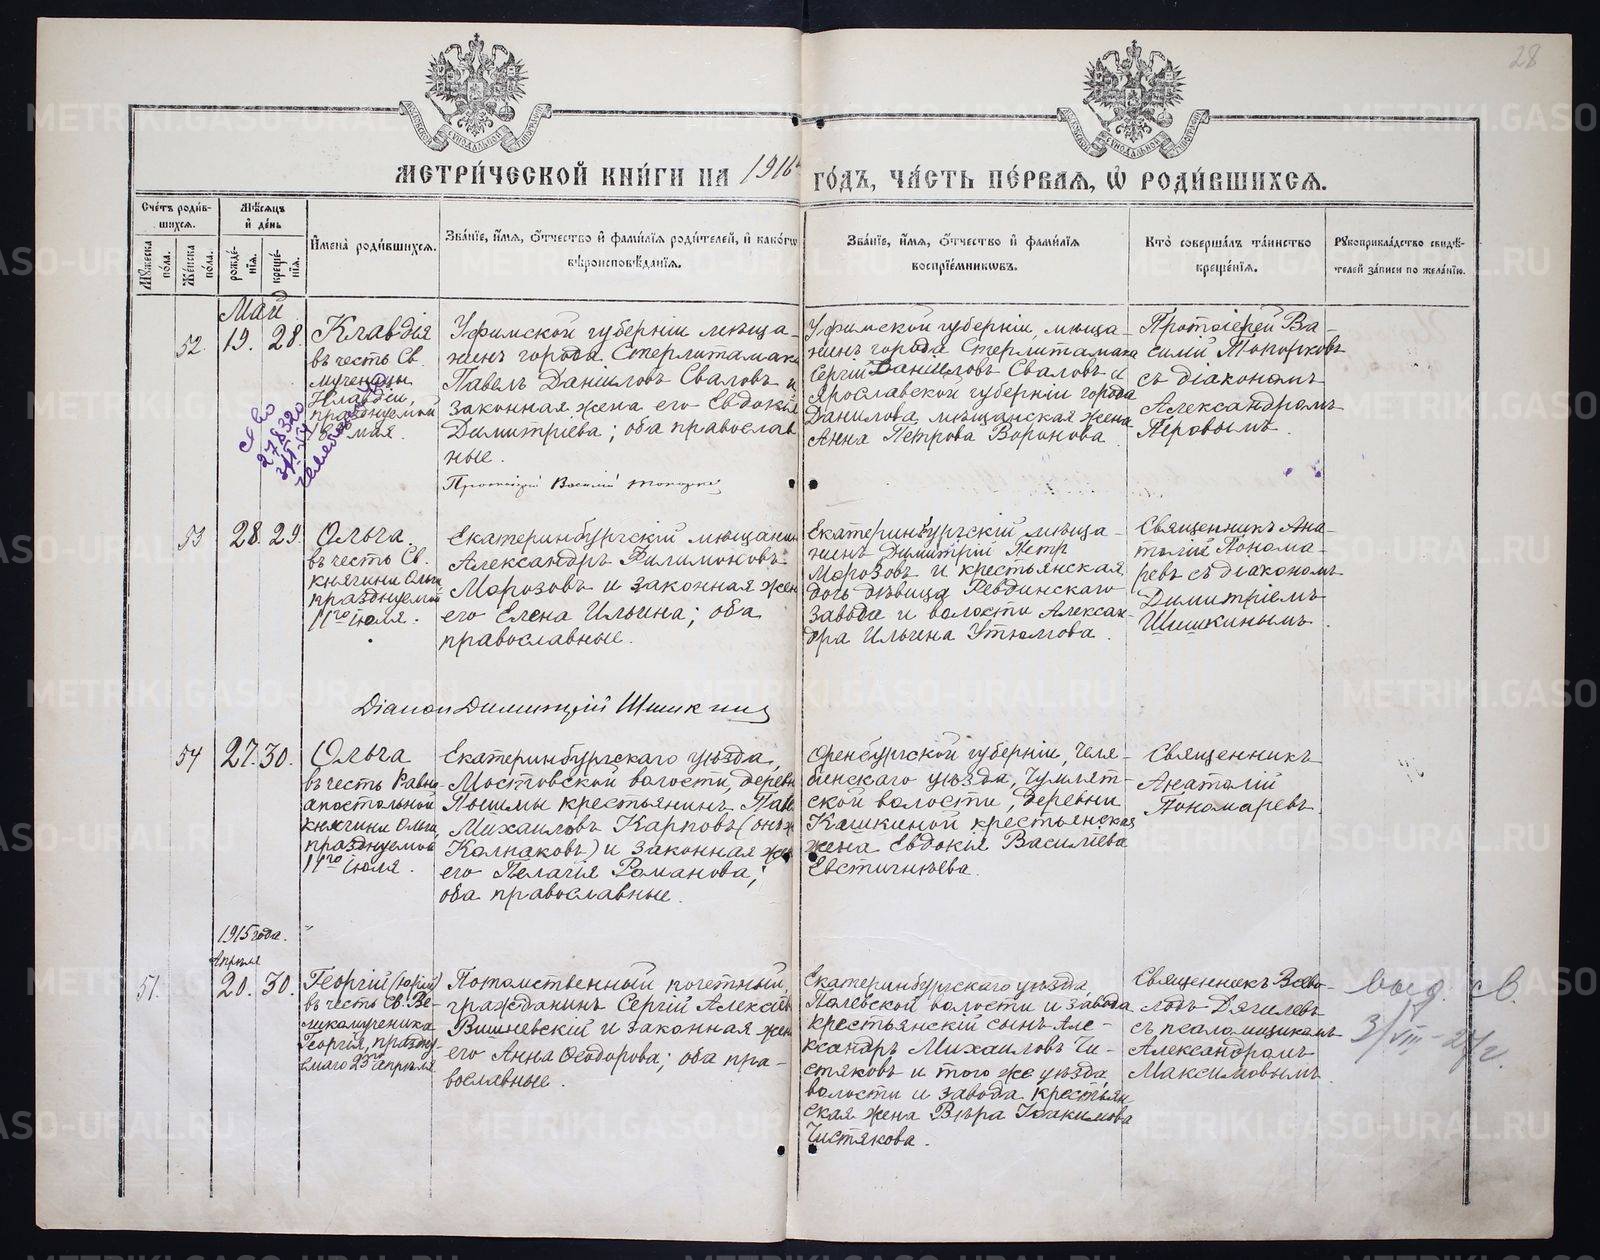 28
МЕТРИ́ЧЕСКОЙ КНИ́ГИ НА 1916 ГО́ДЪ, ЧА́СТЬ ПЕ́РВАЯ, Ѡ РОДИ́ВШИХСЯ.
Сче́тъ роди́в-
шихся.
Мѣ́сяцъ
и де́нь
Мꙋ́жеска
по́ла.
Же́нска
по́ла.
рожде́-
нія.
креще́-
нія.
Имена̀ роди́вшихся.
Зва́ніе, и́мя, ѻ́тчество и фами́лія роди́телей, и како́гѡ
вѣроисповѣ́данія.
Зва́ніе, и́мя, ѻ́тчество и фами́лія
воспріе́мникѡвъ.
Кто̀ соверша́лъ та́инство
креще́нія.
Рꙋкоприкла́дство свидѣ́-
телей за́писи по жела́нію.
Май
52.
19.
28.
Клавдія
въ честь Св.
мученицы
Клавдіи,
празднуемой
18 мая.
Уфимской губерніи мѣща-
нинъ города Стерлитамака
Павелъ Даніиловъ Сваловъ и
законная жена его Евдокія
Димитріева; оба православ
ные.
Протоіерей Василій
Уфимской губерніи, мѣща-
нинъ города Стерлитамака
Сергій Даніиловъ Сваловъ и
Ярославской губерніи города
Данилова мѣщанская жена
Анна Петрова Воронова.
Протоіерей Ва-
силій Топорковъ
съ діакономъ
Александромъ
53
28.
29.
Ольга.
въ честь Св.
княгини Ольги
празднуемой
11го іюля.
Екатеринбургскій мѣщанинъ
Александръ Филимоновъ
Морозовъ и законная жен
его Елена Ильина; оба
православные.
Екатеринбургскій мѣща-
нинъ Димитрій Петр
Морозовъ и крестьянская
дочь дѣвица Ревдинскаго
завода и волости Алексан-
дра Ильина Утюмова.
Священникъ Ана-
толій Понома-
ревъ съ діакономъ
Димитріемъ
Шишкинымъ.
Діаконъ Димитрій Шишкинъ
54
27.
30.
Ольга
въ честь Равно-
апостольной
княгини Ольги,
празднуемой
11го іюля.
Екатеринбургскаго уѣзда,
Мостовской волости, дерев
Пышмы крестьянинъ Паве
Михаиловъ Карповъ (онъ ж
Колпаковъ) и законная же
его Пелагія Романова;
оба православные.
Оренбургской губерніи, Челя-
бинскаго уѣзда, Чумлят-
ской волости, деревни
Кашкиной крестьянская
жена Евдокія Василіева
Евстигнѣева.
Священникъ
Анатолій
Пономаревъ
1915 года.
Апрѣля
51.
20.
30.
Георгій (Юрій)
въ честь Св. Ве-
ликомученика
Георгія, праздну-
емаго 23го апрѣля
Потомственный почетный
гражданинъ Сергій Алексѣев
Вишневскій и законная жен
его Анна Ѳеодорова; оба пра-
вославные.
Екатеринбургскаго уѣзда,
Полевской волости и завода
крестьянскій сынъ Але-
ксандръ Михаиловъ Чи-
стяковъ и того же уѣзда
волости и завода крестьян
ская жена Вѣра Іоакимова
Чистякова.
Священникъ Всево-
лодъ Дягилевъ
съ псаломщикомъ
Александромъ
Максимовымъ.
выд. св.
3/VIII-27г.